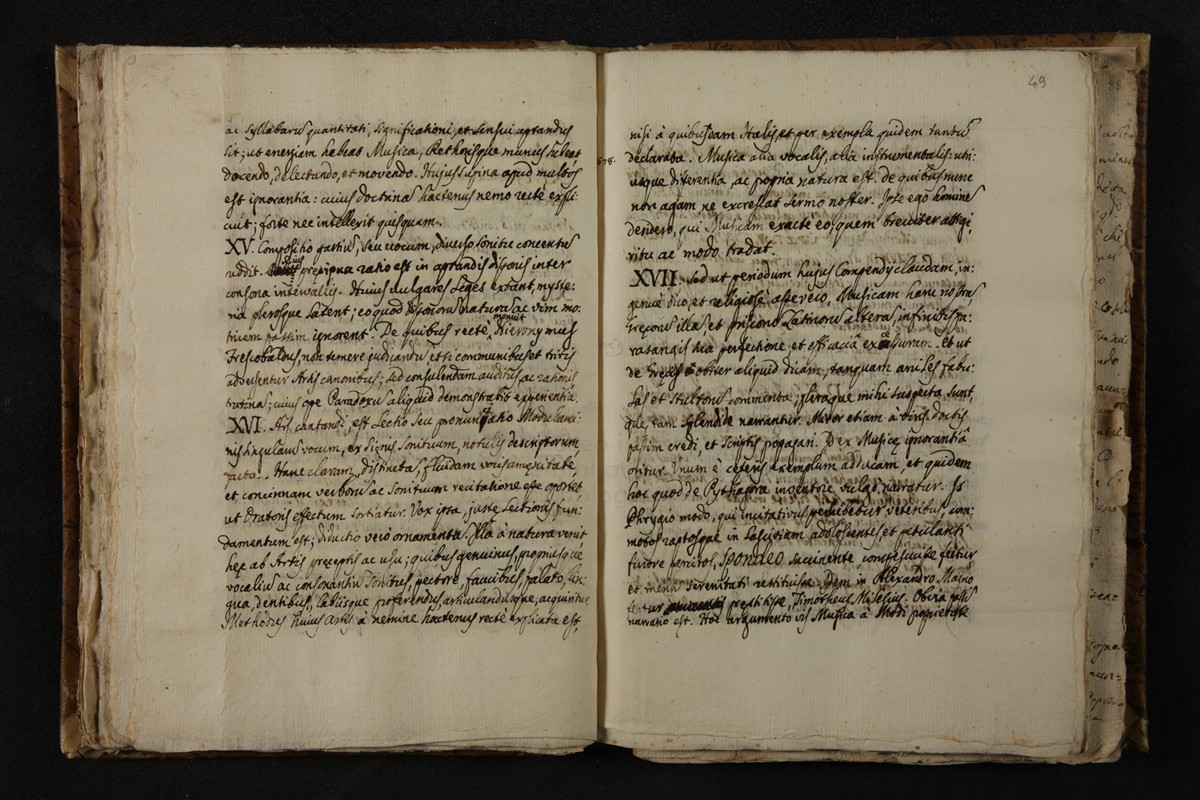 ac syllabarũ quantitati, significationi, et sensui aptandus
sit; ut energiam habeat Musica, Rethorisque munus subeat
docendo, delectando, et movendo. Hujus supina apud multos
est ignorantia: cuius doctrinã hactenus nemo recte expli:
cuit; forte nec intellexit quisquam.
XV. Compositio partiũ, seu vocum, diverso sonitu concentũ
reddit. precipua ratio est in aptandis dissonis inter
consona intervallis. Huius vulgares Leges extant, myste:
ria pleraque latent; eo quod dissonorũ naturã ac vim mo:
tivem passim ignorent. De quibus recte monuit Hieronymus
Frescobaldus non temere judicandũ etsi communibus et tritis
adversentur Artis canonibus; sed consulendam auditus ac rationis
trutinã; cuius ope Paradoxũ aliquid demonstrabit experientia.
XVI. Ars cantandi, est Lectio seu pronuntiatio Modulami:
nis singularũ vocum, ex signis sonituum, notulis descriptorum,
facta. Hanc claram, distinctã, fluidam vocis amenitate,
et concinnam verborũ ac sonituum recitatione esse oportet,
ut Oratoris effectum sortiatur. Vox ipsa, juste Lectionis fun:
damentum est; diductio vero ornamentũ. Illa à natura venit
hęc ab Artis preceptis ac usu; quibus genuinus, propriusque
vocaliũ ac consonantiũ sonitus pectore, faucibus, palato, lin:
gua, dentibus, labiisque proferendus, articulandusque, acquiritur.
Methodus huius artis a nemine hactenus recte explicata est,
49
nisi à quibusdam Italis, et per exempla quidem tantũ
declarata. Musica alia vocalis, alia instrumentalis: utri:
usque differentia, ac propria natura est. de quibus nunc
non agam ne excrescat sermo noster. Iste ego hominẽ
dendero, qui Musicam exacte eo, quem breviter attigi,
ritu ac modo tradat.
XVII. Sed ut periodum hujus Compendij claudam, in:
genue dico, et religiose assevero, Musicam hanc nostrã
Greçorũ illa, et priscorũ Latinorũ altera, infinitis pa:
rasangis sua perfectione et efficaciã excessuram. Et ut
de Greçis obiter aliquid dicam, tanquam aniles fabu:
las et stultorũ commenta, pleraque mihi suspecta sunt,
quę tam splendide narrantur. Miror etiam à viris doctis
passim credi, et scriptis propagari. Id ex Musicę ignorantiã
oritur. Unum è ceteris exemplum adducam, et quidem
hoc quod de Pythagora inventore vulgo narratur. Is
Phrygio modo, qui incitativus perhibetur veteribus, com:
motos raptosque in lasciviam adolescentes et petulanti
furore percitos, SPONDEO succinente, compescuisse fertur
et menti serenitati restituisse. Idem in Alexandro Magno
prestitisse, Timotheus Milesius. Obvia
narratio est. Hoc argumento vis Musica à Modi proprietate